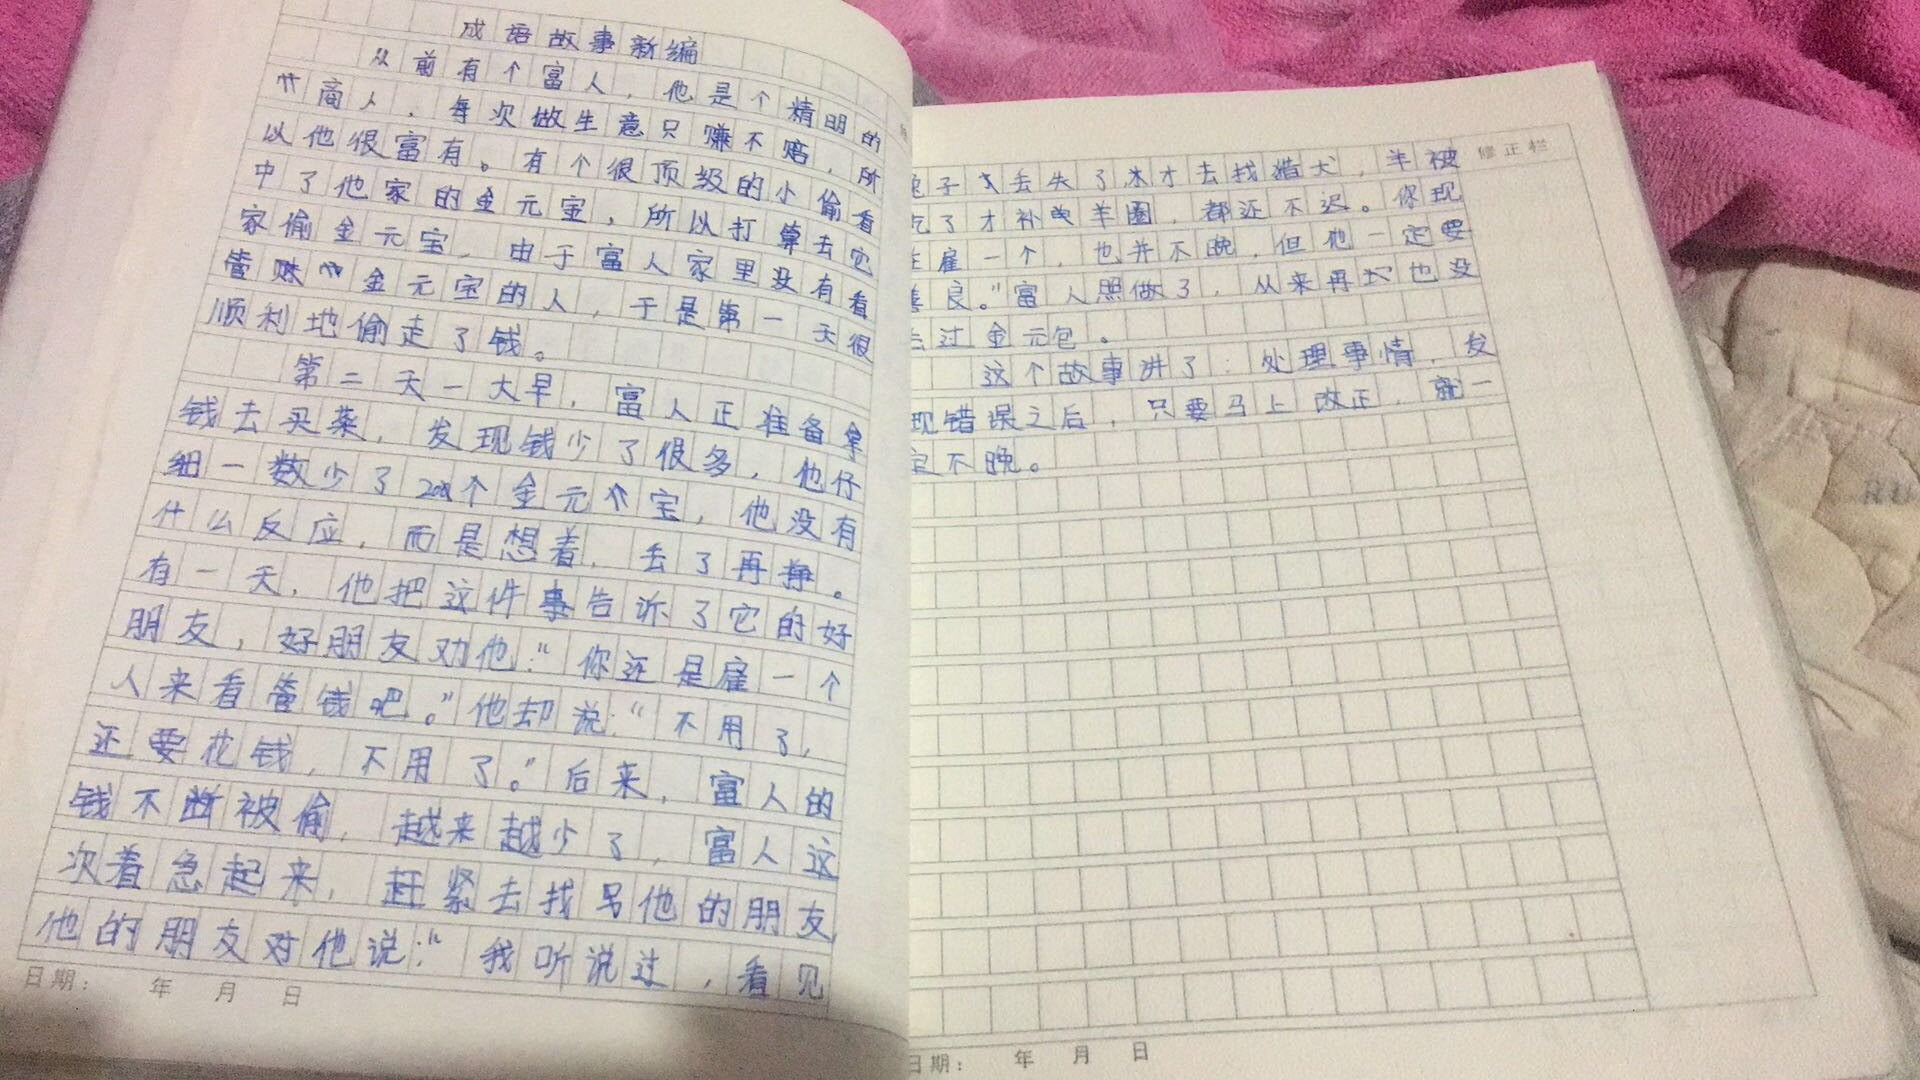 成语故事新编
从前有个富人，他是个精明的
商人，每次做生意只赚不赔，所
以他很富有。有个很顶级的小偷看
中了他家的金元宝，所以打算去它
家偷金元宝，由于富人家里没有看
管金元宝的人，于是第一天很
顺利地偷走了钱。
第二天一大早，富人正准备拿
钱去买菜，发现钱少了很多，他仔
细一数少了个金元宝，他没有
什么反应，而是想着，丢了再挣。
有一天，他把这件事告诉了它的好
朋友，好朋友劝他：“你还是雇一个
人来看管钱吧。”他却说：“不用了，
还要花钱，不用了。”后来，富人的
钱不断被偷，越来越少了，富人这
次着急起来，赶紧去找他的朋友
他的朋友对他说：“我听说过，看见
日期： 年 月 日
修正栏
兔子丢失了才去找猎犬，羊被
吃了才补羊圈，都还不迟。你现
在雇一个，也并不晚，但他一定要
善良。”富人照做了，从来再也没
丢过金元包。
这个故事讲了：处理事情，发
现错误之后，只要马上改正，就一
定不晚。
日期： 年 月 日